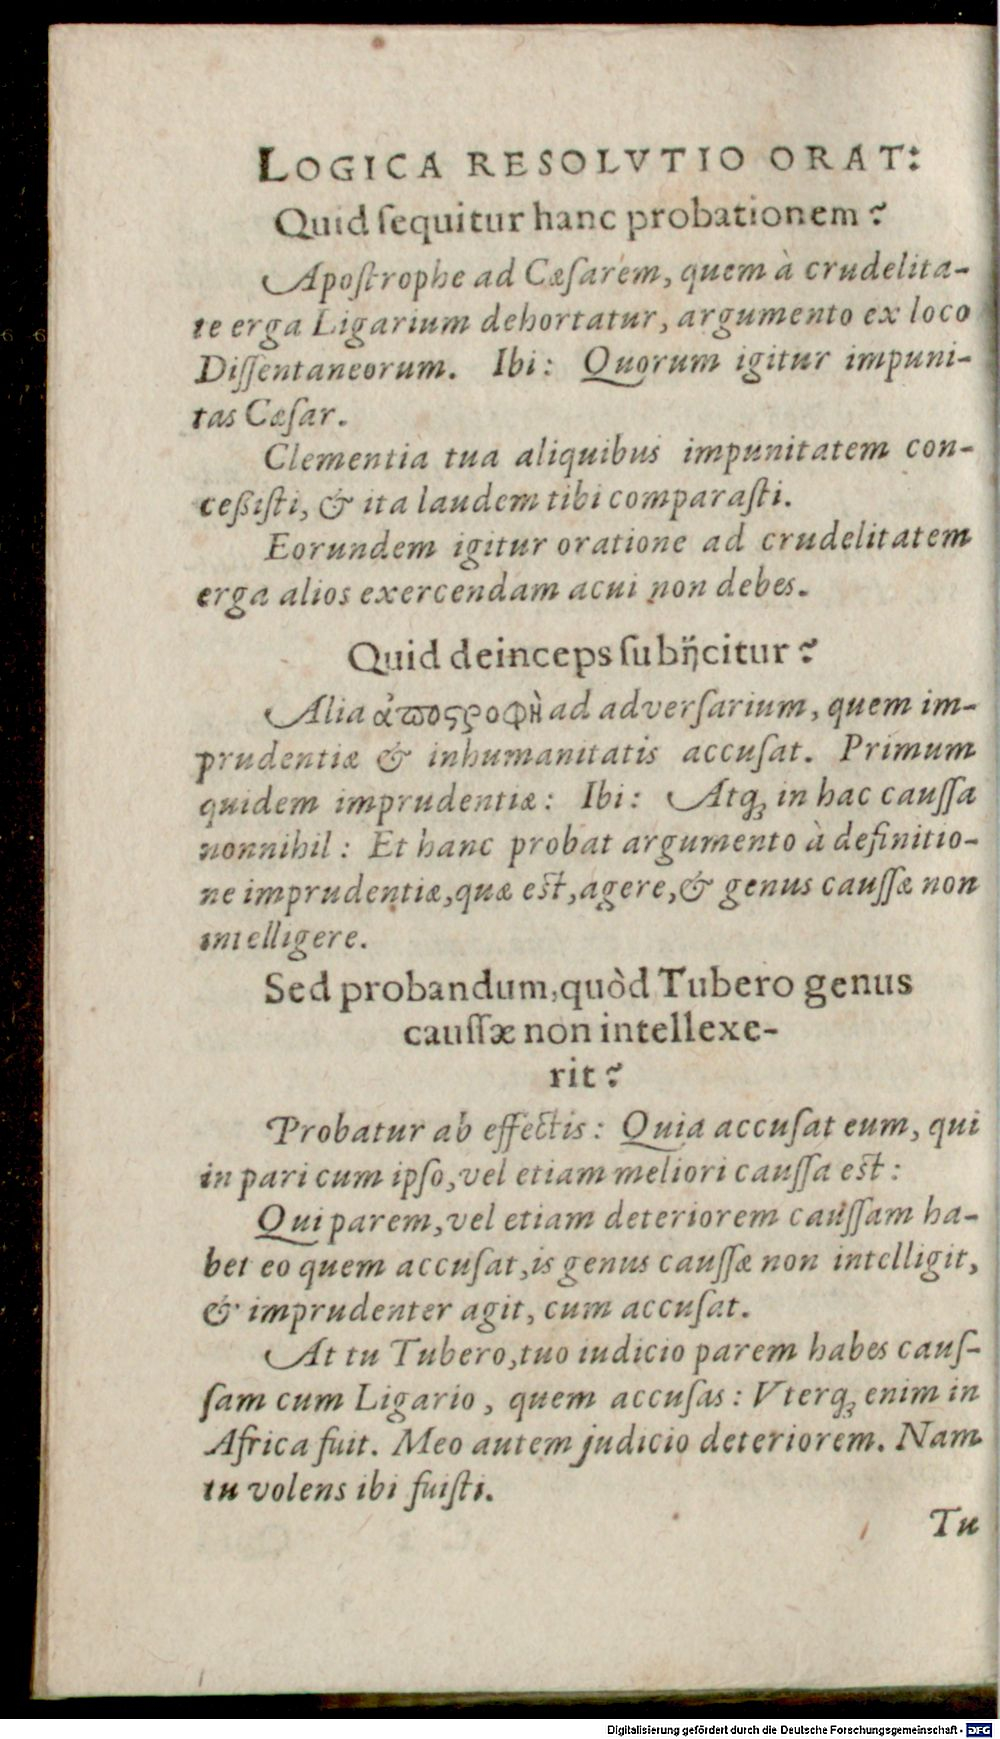 LOGICA RESOLVTIO ORAT:
Quid ſequitur hanc probationem?
Apoſtrophe ad Cæſarem, quem à crudelita-
te erga Ligarium dehortatur, argumento ex loco
Diſſentaneorum. Ibi: Quorum igitur impuni-
tas Cæſar.
Clementia tua aliquibus impunitatem con-
ceßiſti, & ita laudem tibi comparaſti.
Eorundem igitur oratione ad crudelitatem
erga alios exercendam acui non debes.
Quid deinceps ſubijcitur?
Alia ἀποςροφὴ ad adverſarium, quem im-
prudentiæ & inhumanitatis accuſat. Primum
quidem imprudentiæ: Ibi: Atqꝫ in hac cauſſa
nonnihil: Et hanc probat argumento à definitio-
ne imprudentiæ, quæ est, agere, & genus cauſſæ non
intelligere.
Sed probandum, quòd Tubero genus
cauſſæ non intellexe-
rit?
Probatur ab effectis: Quia accuſat eum, qui
in pari cum ipſo, vel etiam meliori cauſſa est:
Qui parem, vel etiam deteriorem cauſſam ha-
bet eo quem accuſat, is genus cauſſæ non intelligit,
& imprudenter agit, cum accuſat.
At tu Tubero, tuo iudicio parem habes cauſ-
ſam cum Ligario, quem accuſas: Vterqꝫ enim in
Africa fuit. Meo autem judicio deteriorem. Nam
tu volens ibi fuiſti.
Tu
Digitalisierung gefördert durch die Deutsche Forschungsgemeinschaft - DFG